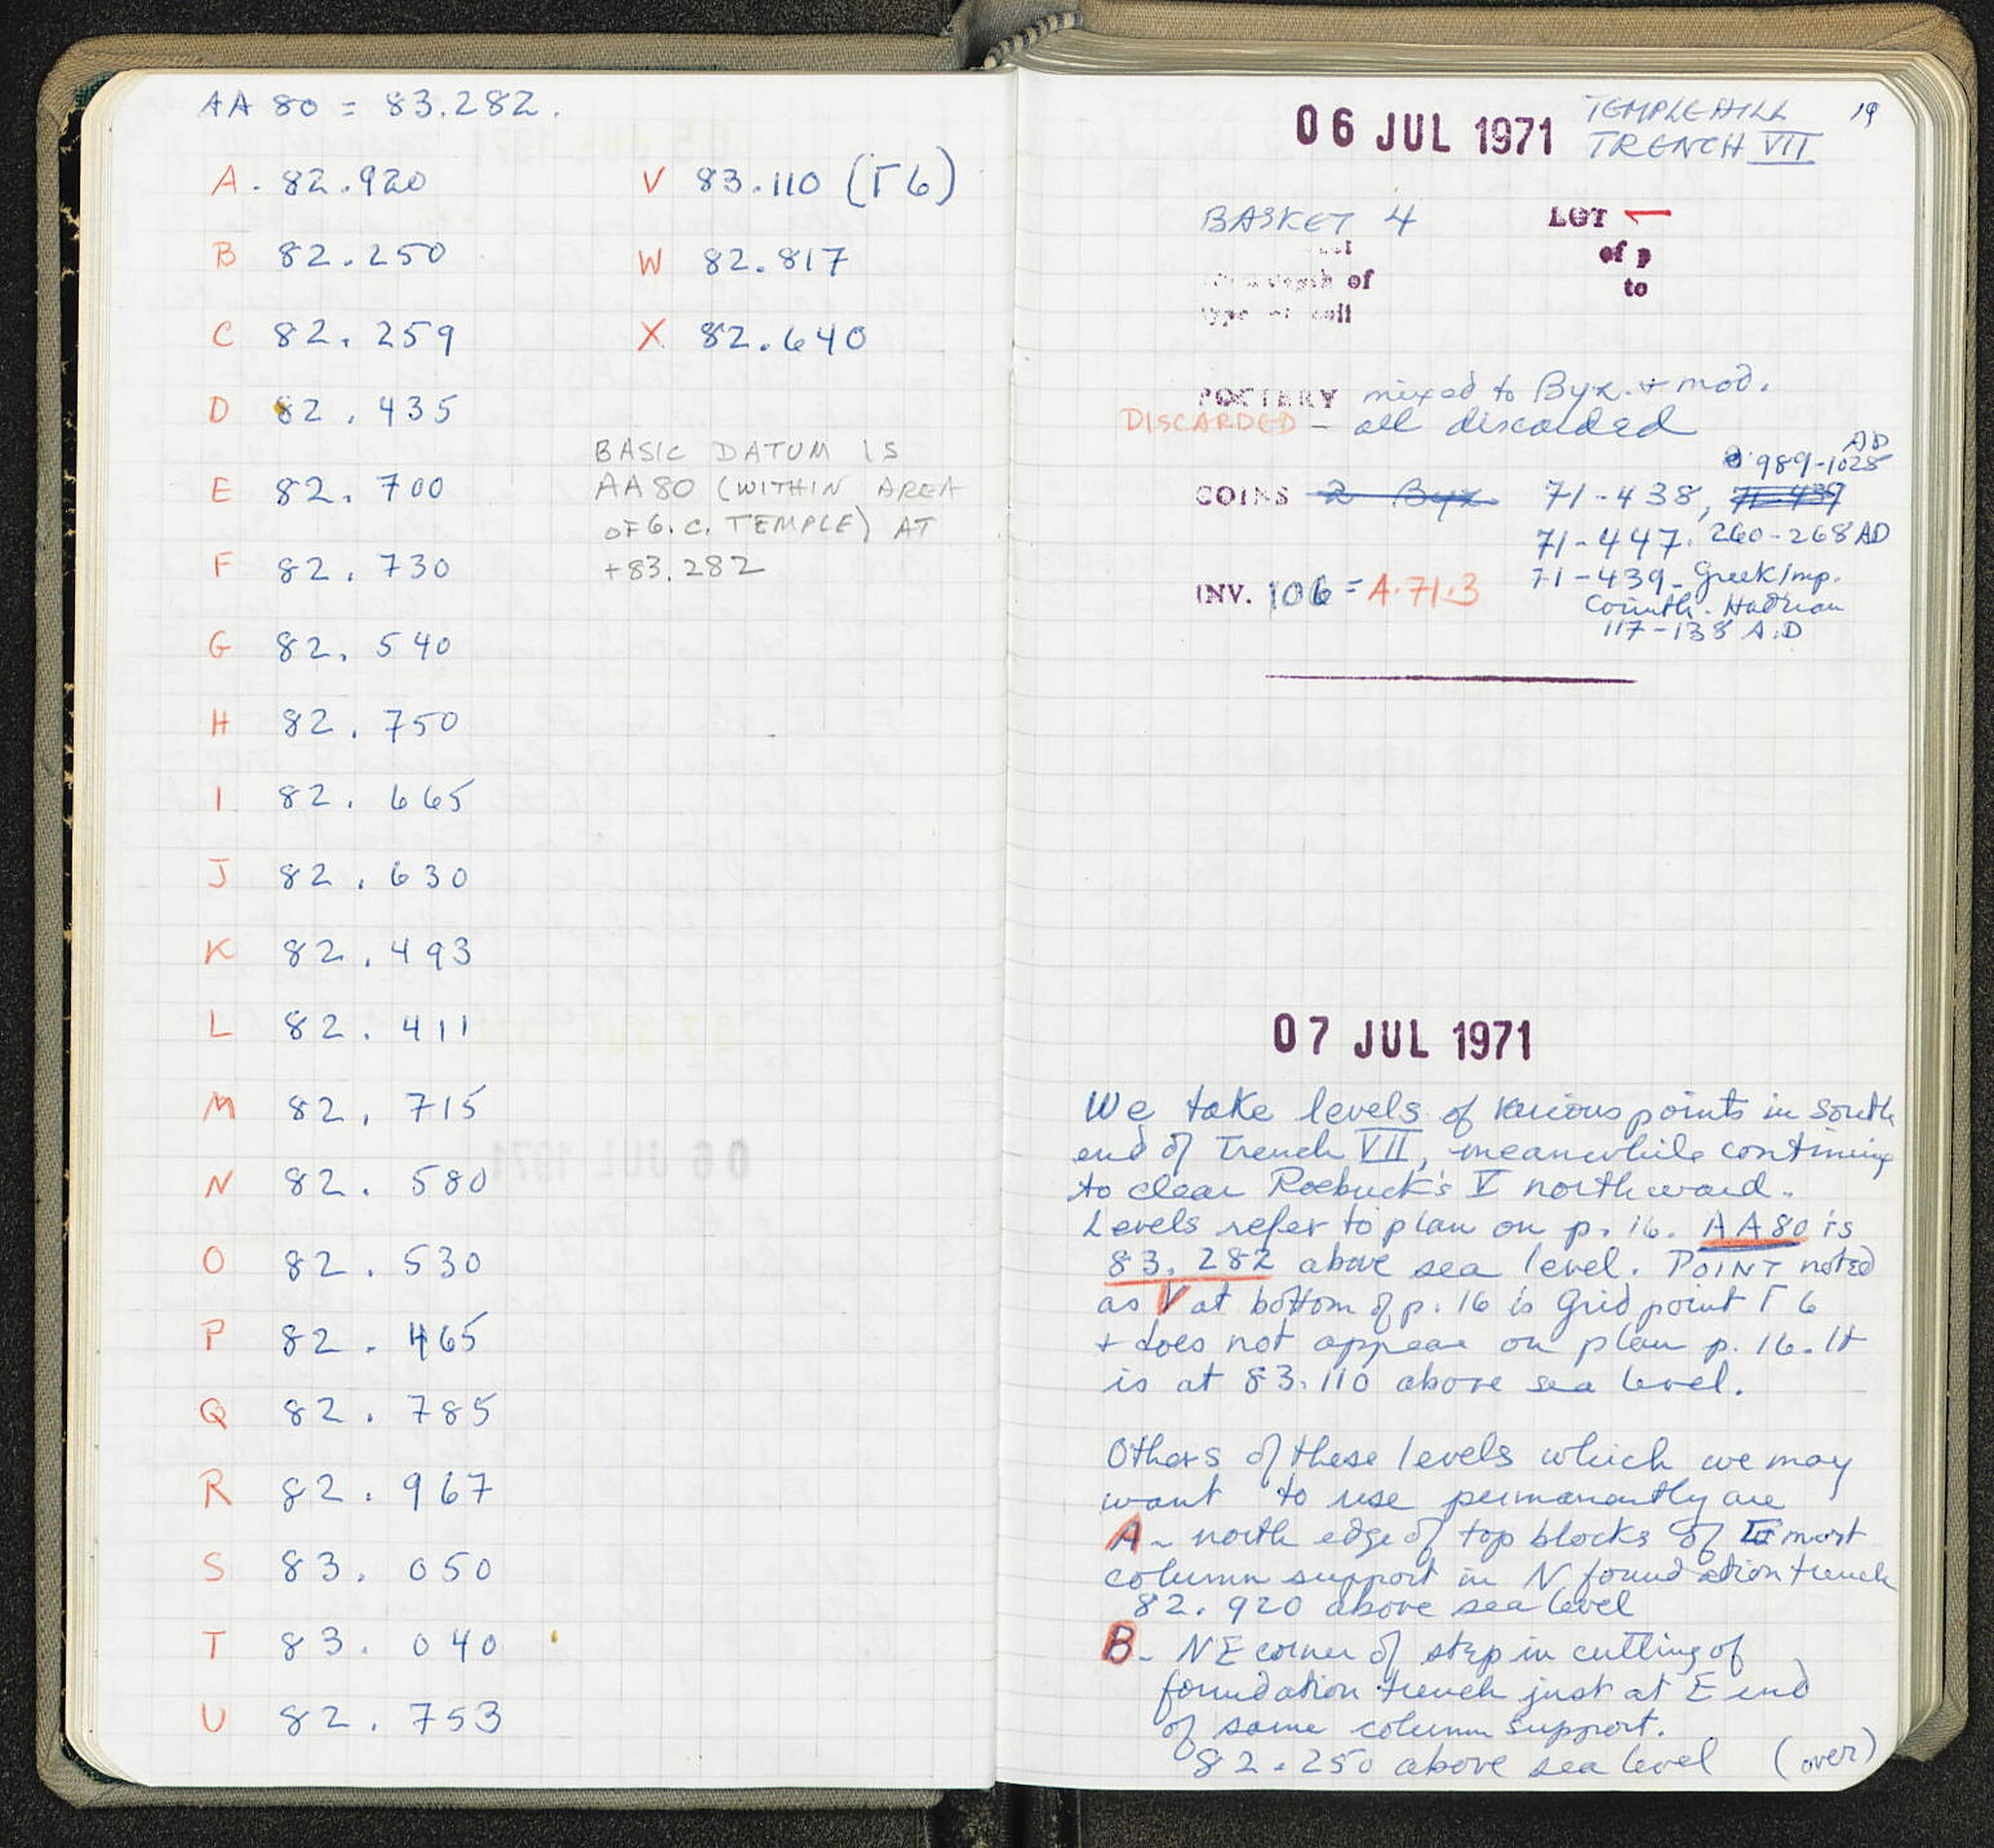 AA 80 = 83.282.
A. 82.920
B 82.250
C 82.259
D 82.435
E 82.700
F 82.730
G 82.540
H 82.750
I 82.665
J 82.630
K 82.493
L 82.411
M 82.715
N 82.580
O 82.530
P 82.465
Q 82.785
R 82.967
S 83.050
T 83.040
U 82.753
V 83.110 (Γ6)
W 82.817
X 82.640
BASIC DATUM IS
AA80 (WITHIN AREA
OF G.C. TEMPLE) AT
+83.282
06 JUL 1971
TEMPLE HILL
TRENCH VII
19
BASKET 4
LOT
of p
to
depth of
type of soil
POTTERY mixed to Byz. + mod.
DISCARDED - all discarded
COINS 2 Byz. 71-438, 989-1028 AD
71-439
71-447. 260-268 AD
71-439 - Greek Imp.
Corinth. Hadrian
117-138 A.D
INV. 106 = A.71.3
07 JUL 1971
We take levels of various points in south
end of Trench VII, meanwhile continuing
to clear Roebuck's V northward.
Levels refer to plan on p. 16. AA80 is
83.282 above sea level. POINT noted
as V at bottom of p. 16 is Grid point Γ6
+ does not appear on plan p. 16. It
is at 83.110 above sea level.
Others of these levels which we may
want to use permanently are
A - north edge of top blocks of E most
column support in N foundation trench
82.920 above sea level
B - NE corner of step in cutting of
foundation trench just at E end
of same column support.
82.250 above sea level (over)